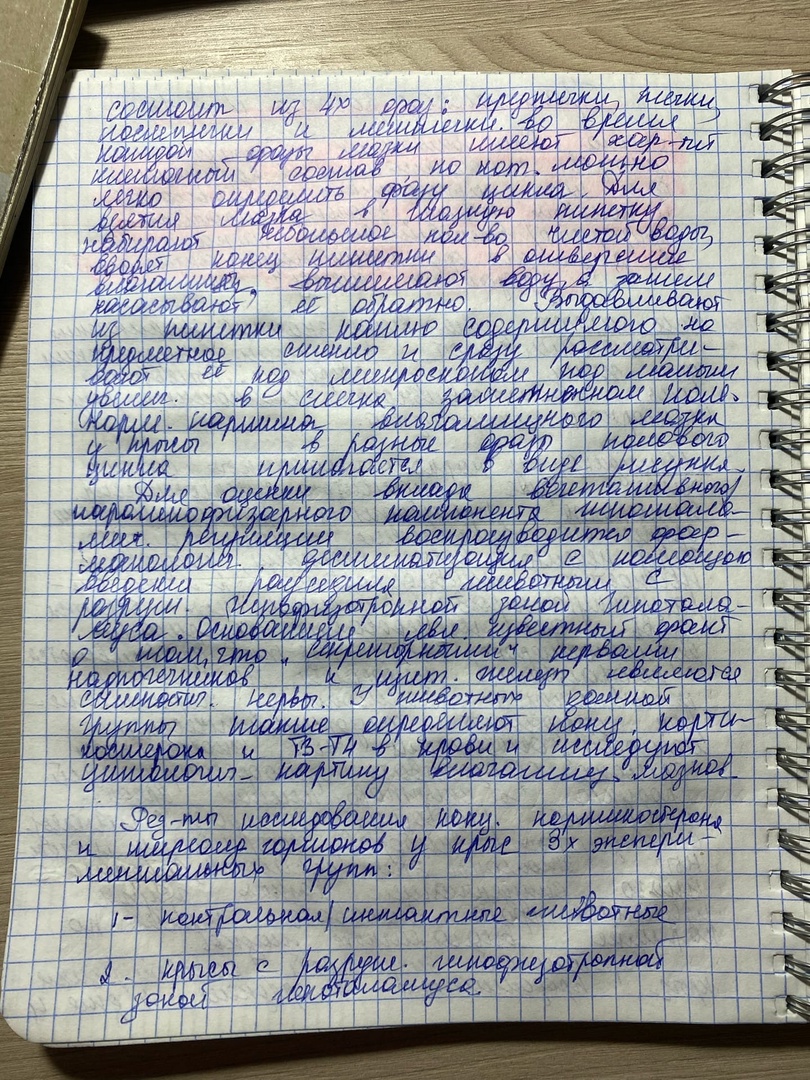 состоит из 4х фаз: предтечки, течки,
послетечки и метатечки. Во время
каждой фазы мазки имеют хар-ый
клеточный состав, по кот. можно
легко определить фазу цикла. Для
взятия мазка в глазную пипетку
набирают небольшое кол-во чистой воды,
вводят конец пипетки в отверстие
влагалища, выпускают воду, а затем
насасывают её обратно. Выдавливают
из пипетки каплю содержимого на
предметное стекло и сразу рассматри-
вают её под микроскопом под малым
увелич. в слегка затемнённом поле.
Норм. картина влагалищного мазка
у крысы в разные фазы полового
цикла прилагается в виде рисунка.
Для оценки вклада вегетативного/
парагипофизарного компонента гипотала-
мич. регуляции воспроизводится фар-
макологич. десимпатизация с помощью
введения раунседила животным с
разруш. гипофизотропной зоной гипотала-
муса. Основанием явл. известный факт
о том, что "секреторными" нервами
надпочечников и щит. железы являются
симпатич. нервы. У животных данной
группы также определяют конц. корти-
костерона и Т3-Т4 в крови и исследуют
цитологич. картину влагалищ. мазков.
Рез-ты исследования конц. кортикостерона
и тиреоид. гормонов у крыс 3х экспери-
ментальных групп:
1 - контрольная/интактные животные
2. крысы с разруш. гипофизотропной
зоной гипоталамуса.